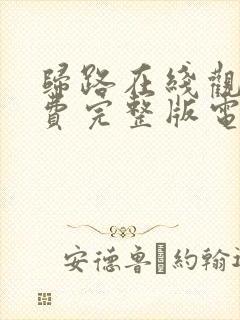 歸路在綫觀
費完整版電
安德魯·約翰遜